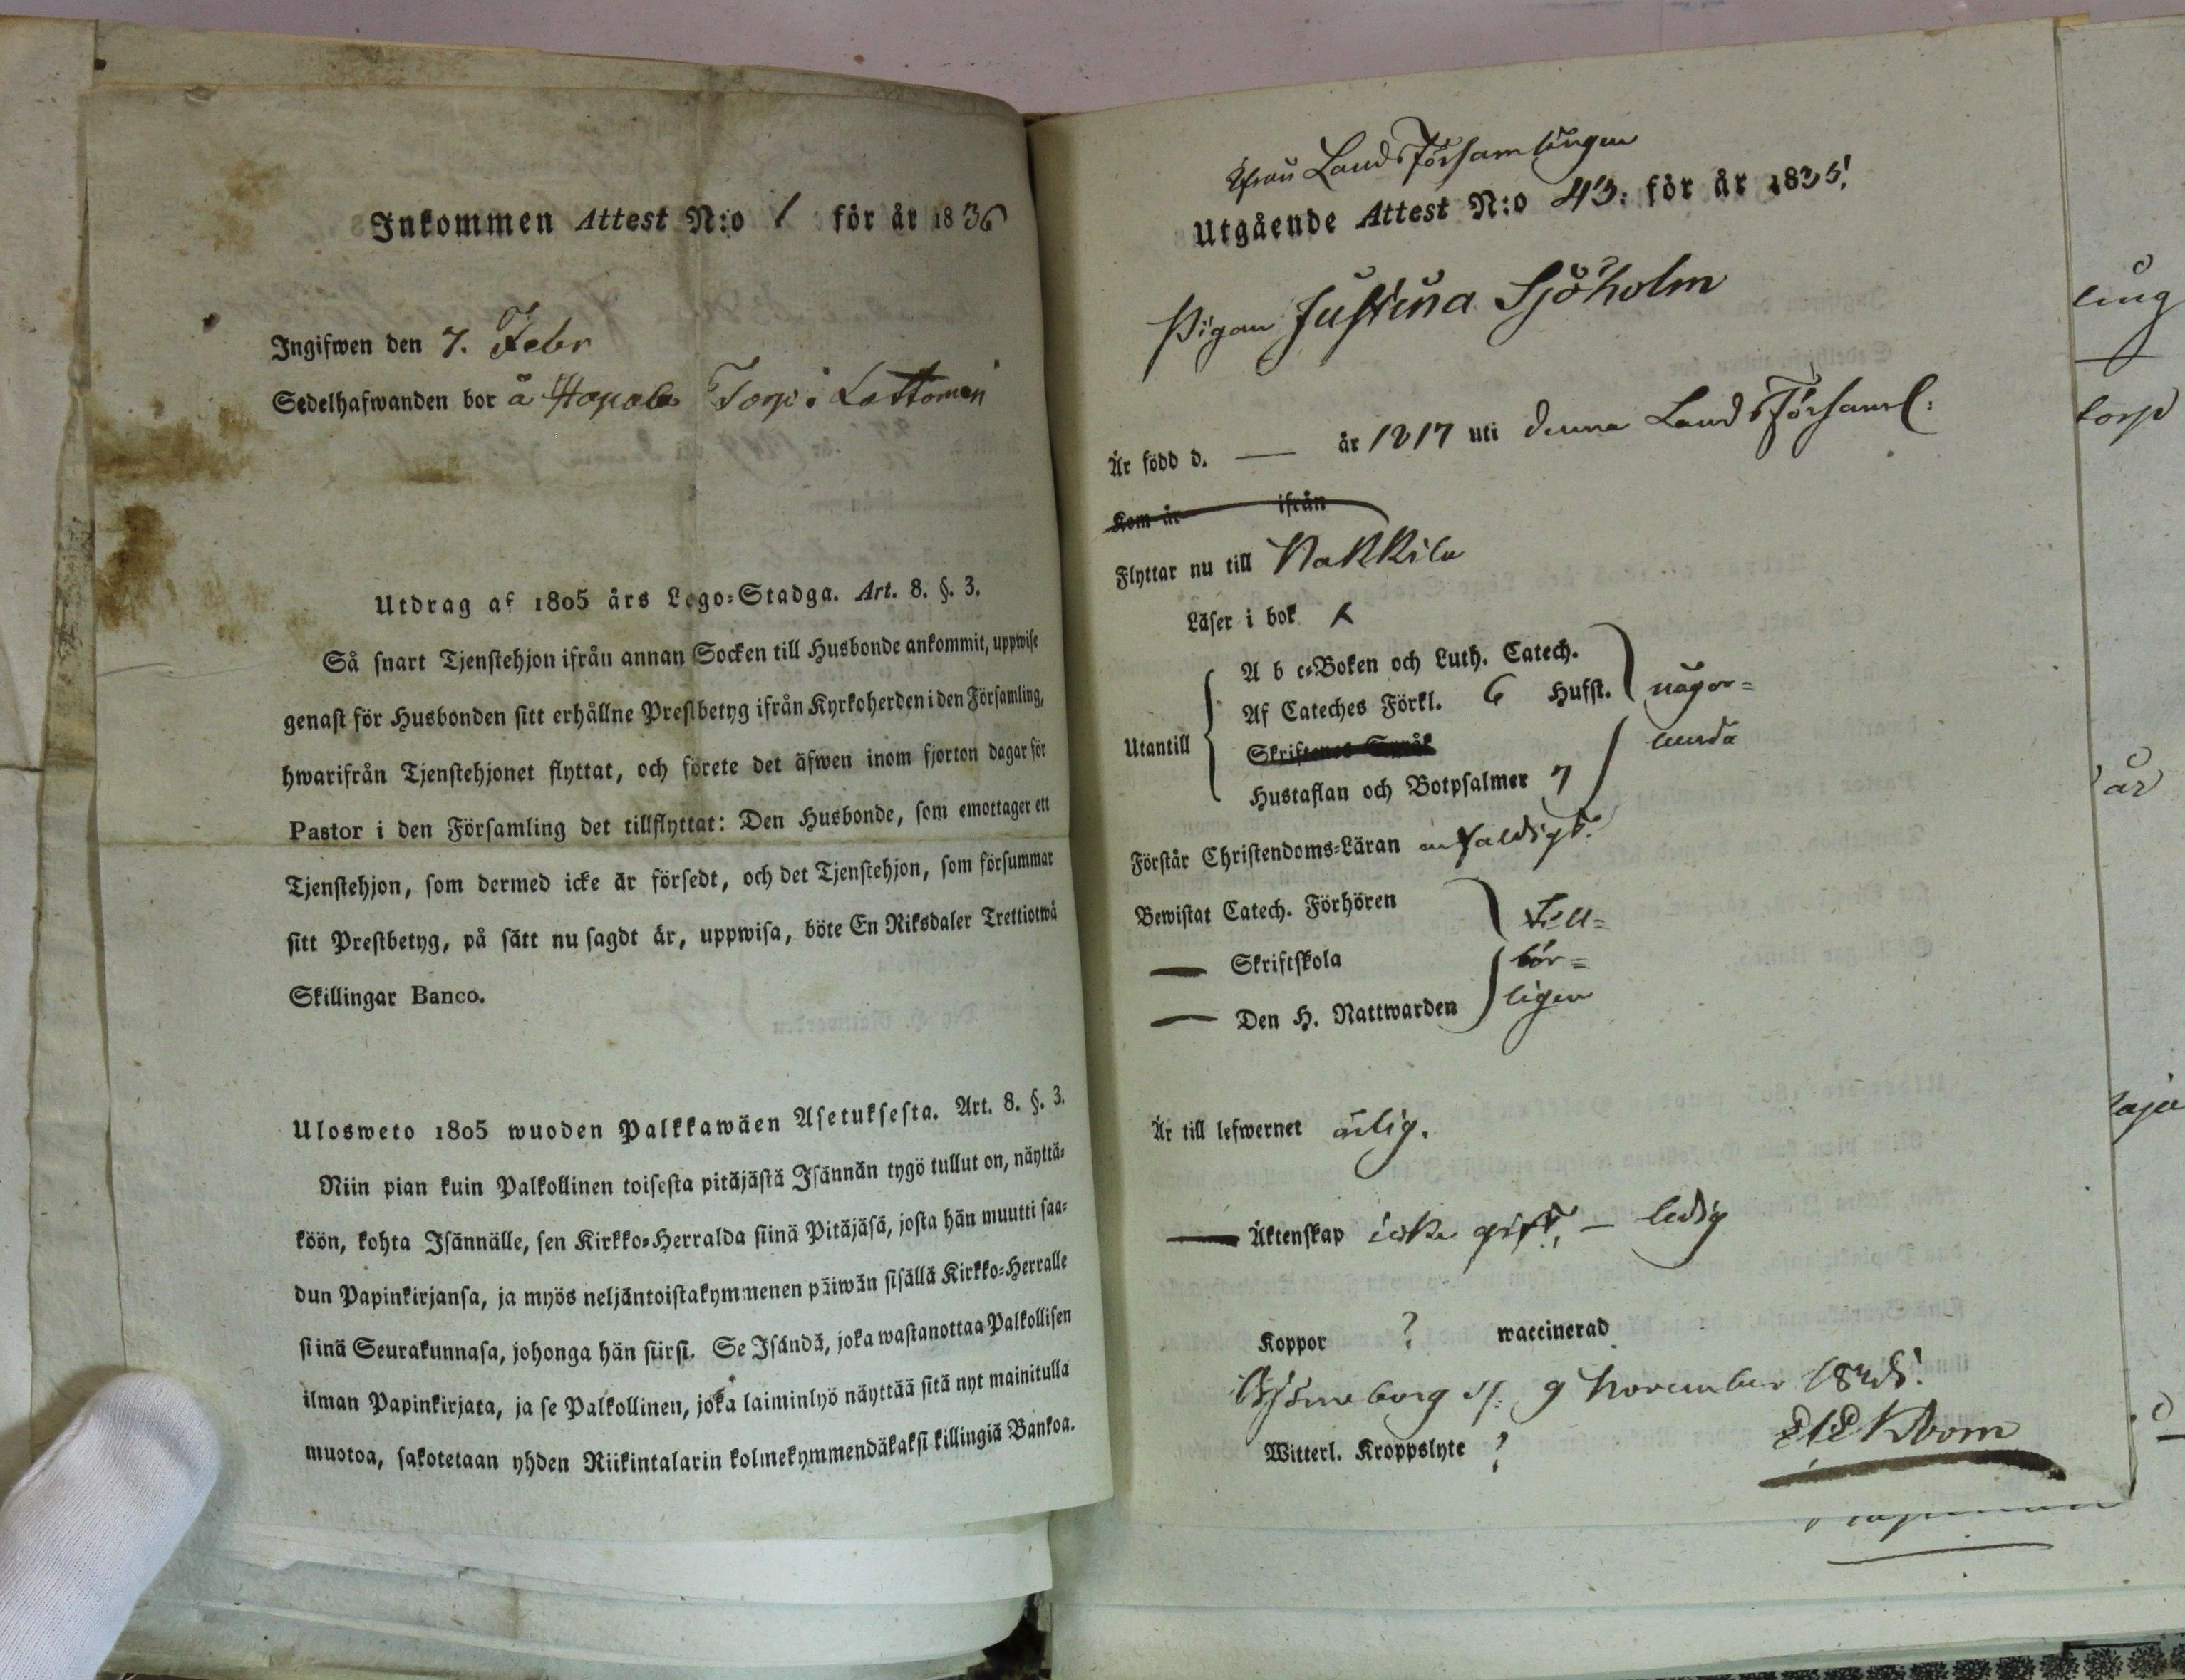 Inkommen Attest N:o 1 för år 1836
Ingifwen den 7. Febr
Sedelhafwanden bor å Torp i Lattomeri
Utdrag af 1805 års Lego-Stadga. Art. 8. §. 3.
Så snart Tjenstehjon ifrån annan Socken till Husbonde ankommit, uppwise
genast för Husbonden sitt erhållne Prestbetyg ifrån Kyrkoherden i den Församling,
hwarifrån Tjenstehjonet flyttat, och förete det äfwen inom fjorton dagar för
Pastor i den Församling det tillflyttat: Den Husbonde, som emottager ett
Tjenstehjon, som dermed icke är försedt, och det Tjenstehjon, som försummar
sitt Prestbetyg, på sätt nu sagdt är, uppwisa, böte En Riksdaler Trettiotwå
Skillingar Banco.
Ulosweto 1805 wuoden Palkkawäen Asetuksesta. Art. 8. §. 3.
Niin pian kuin Palkollinen toisesta pitäjästä Isännän tygö tullut on, näyttä-
köön, kohta Isännälle, sen Kirkko-Herralda siinä Pitäjäsä, josta hän muutti saa-
dun Papinkirjansa, ja myös neljäntoistakymmenen päiwän sisällä Kirkko-Herralle
siinä Seurakunnasa, johonga hän siirsi. Se Isändä, joka wastanottaa Palkollisen
ilman Papinkirjata, ja se Palkollinen, joka laiminlyö näyttää sitä nyt mainitulla
muotoa, sakotetaan yhden Riikintalarin kolmekymmendäkaksi killingiä Bankoa.
ifrån Landsförsamlingen
Utgående Attest N:o 43. för år 1835!
Pigan Justina Sjöholm
Är född d. — år 1817 uti denna Landsförsaml:
Kom år ifrån
Flyttar nu till Nakkila
Läser i bok
Utantill
A b c-Boken och Luth. Catech.
Af Cateches Förkl. 6 Hufst. någor=
Skriftenes Språk lunda
Hustaflan och Botpsalmer 7
Förstår Christendoms-Läran enfaldigt.
Bewistat Catech. Förhören veder=
— Skriftskola bör=
— Den H. Nattwarden ligen
Är till lefwernet ärlig.
— Äktenskap icke gift, — ledig
Koppor ? waccinerad
Björneborg d. 9 November 1835!
Witterl. Kroppslyte ?
ling
torp
år